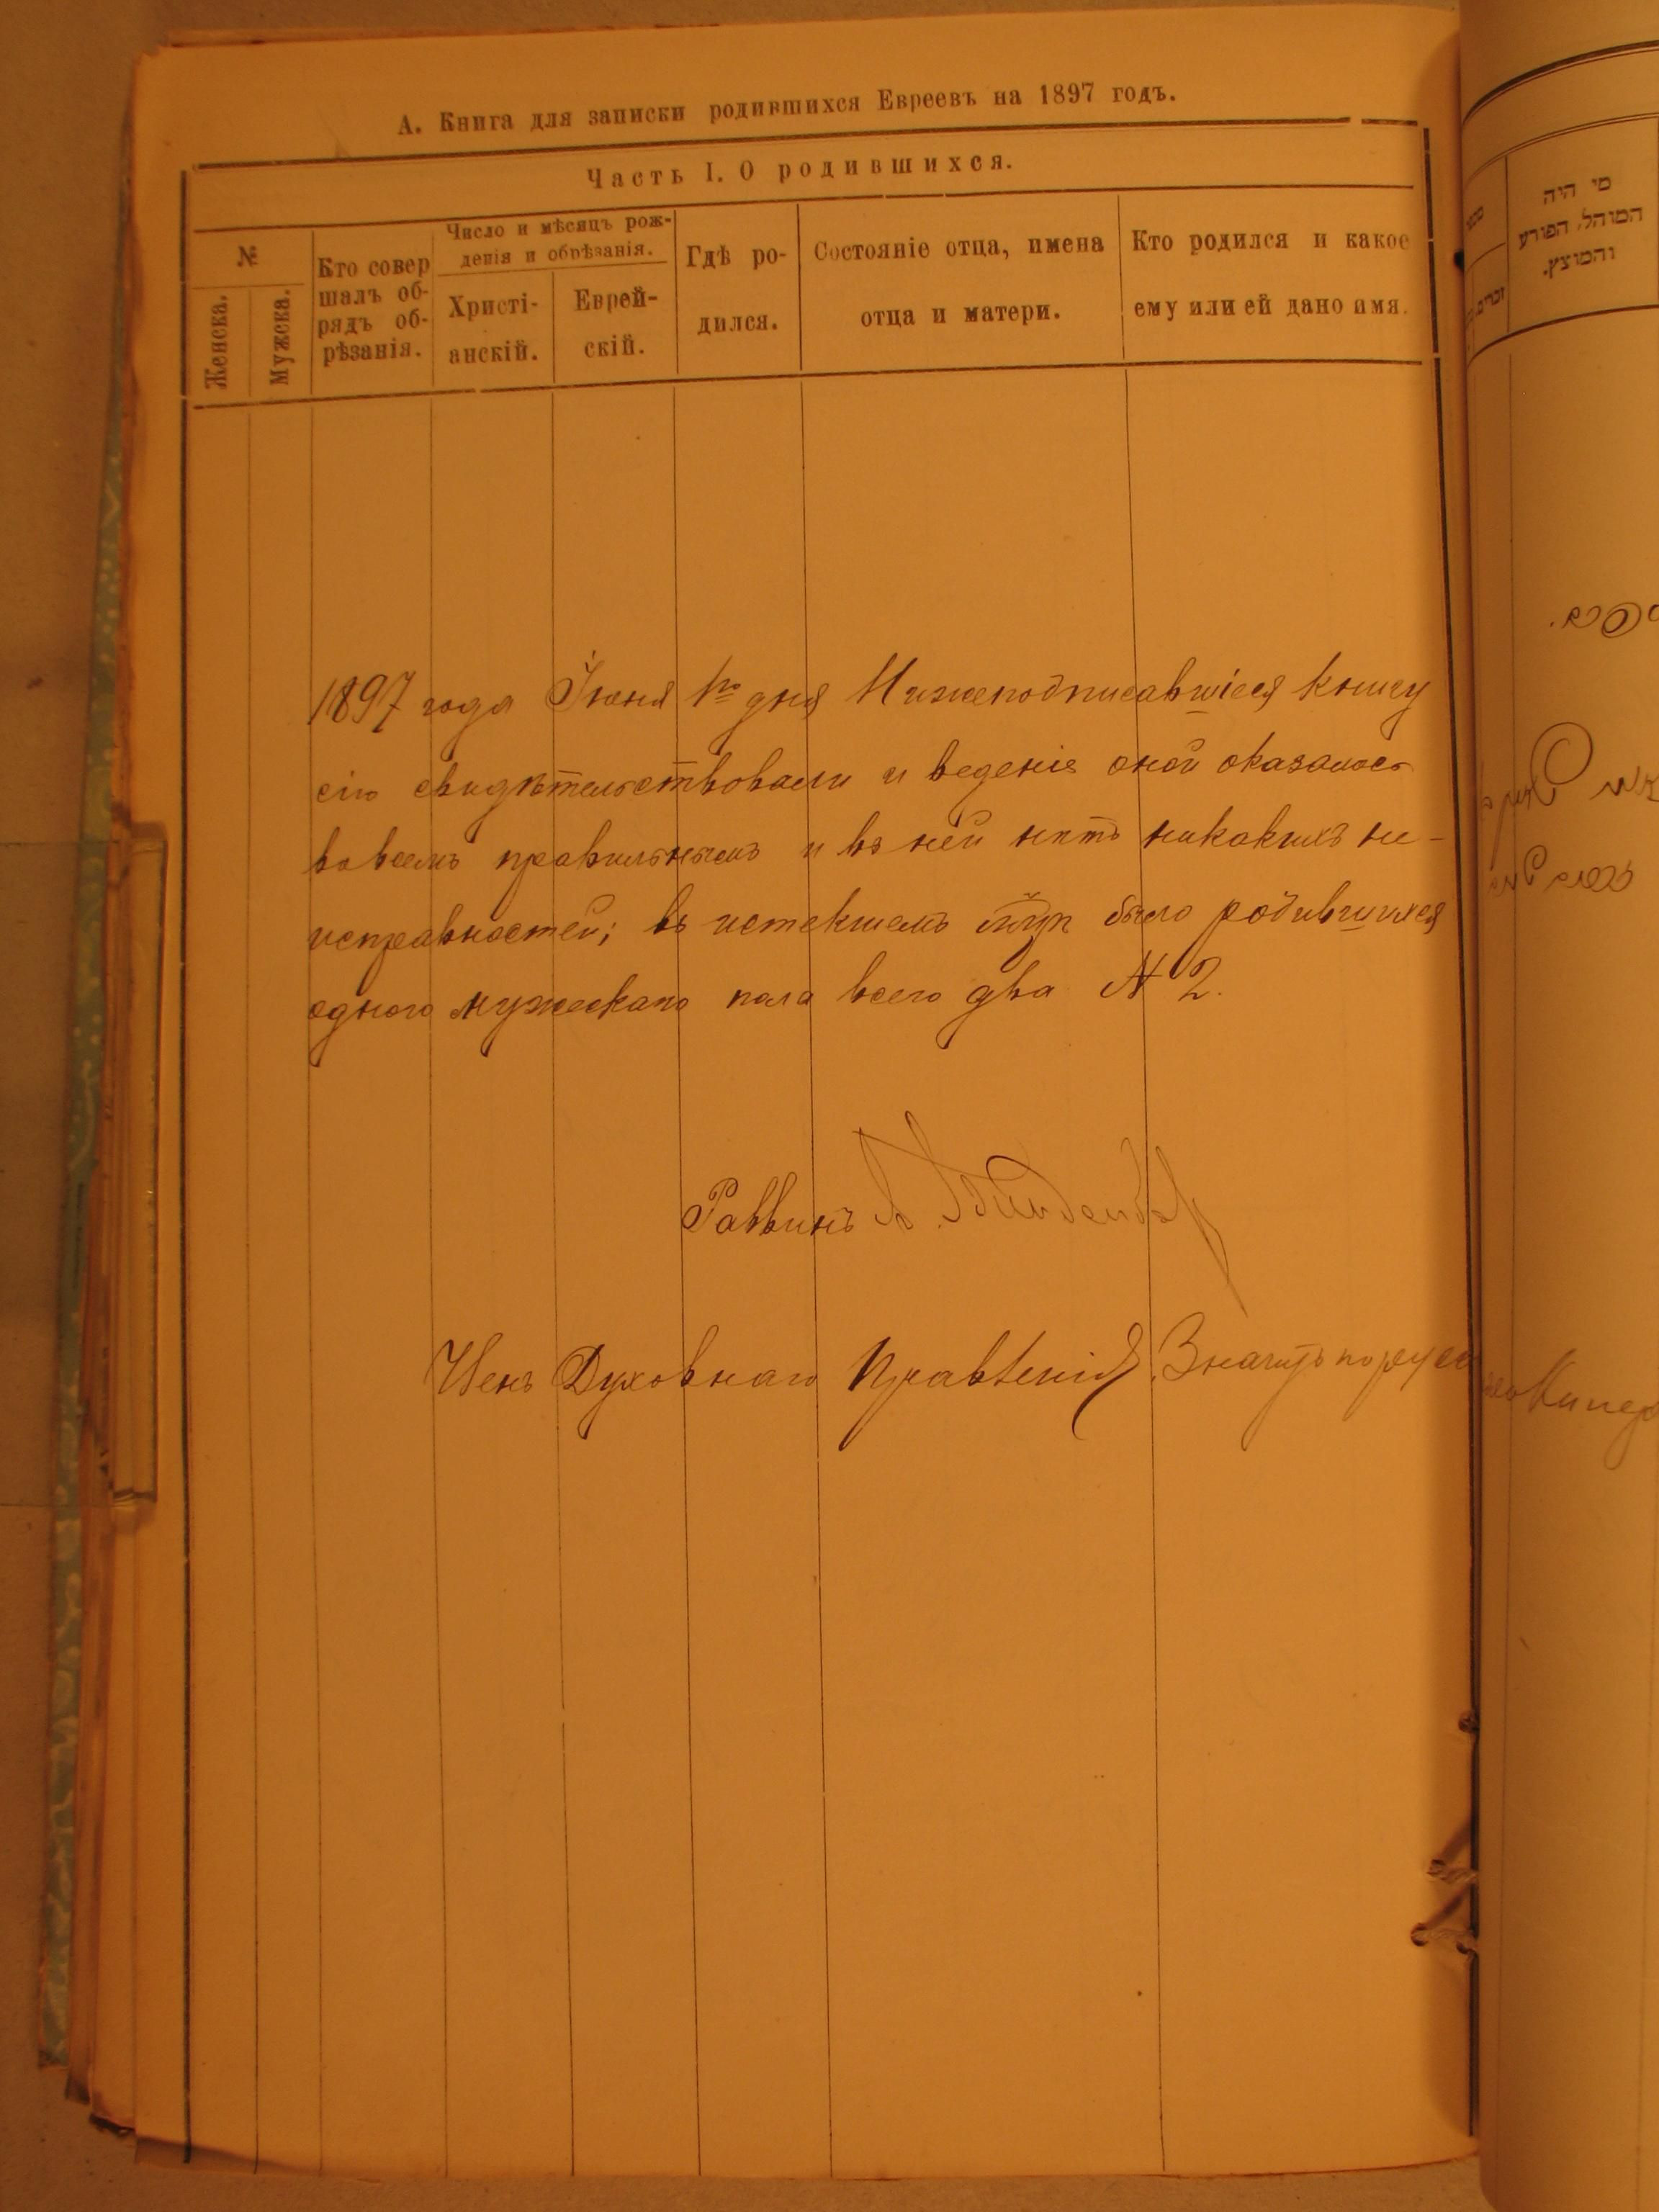 А. Книга для записки родившихся Евреевъ на 1897 годъ.
Часть I. О родившихся.
№
Женска.
Мужска.
Кто совер
шалъ об-
рядъ об-
рѣзанія.
Число и мѣсяцъ рож-
денія и обрѣзанія.
Христі-
анскій.
Еврей-
скій.
Гдѣ ро-
дился.
Состояніе отца, имена
отца и матери.
Кто родился и какое
ему или ей дано имя.
1897 года Іюня 1го дня Нижеподписавшіеся книгу
сію свидѣтельствовали и веденіе оной оказалось
вовсемъ правильнымъ и въ ней нѣтъ никакихъ не-
исправностей; въ истекшемъ было родившихся
одного мужескаго пола всего два N 2.
Раввинъ
Членъ Духовнаго Правленія
מי היה
המוהל, הפורע
והמוצץ.